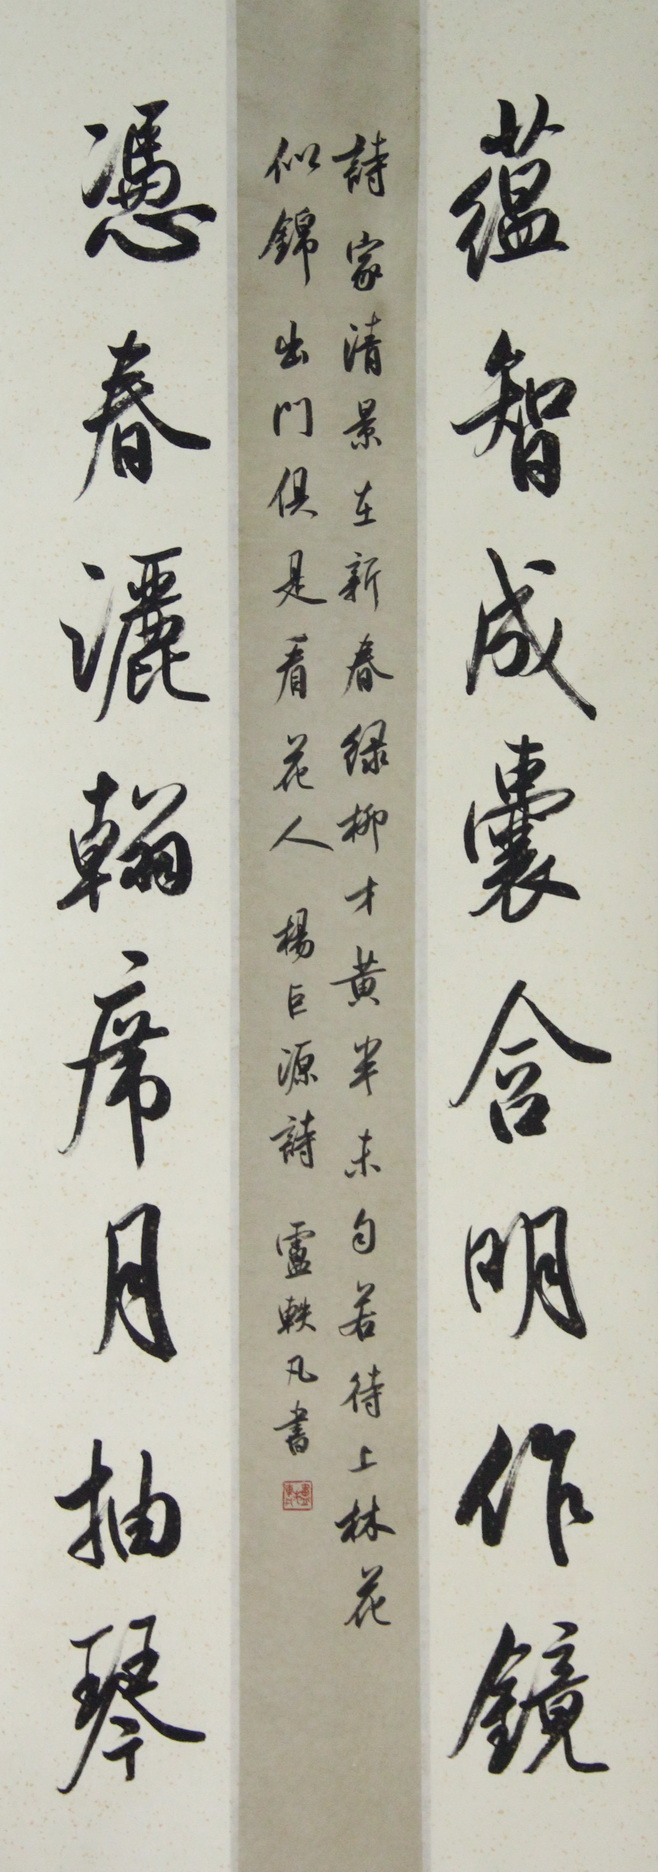 蕴智成囊含明作鏡
詩家清景在新春绿柳才黄半未匀若待上林花
似錦出門俱是看花人 楊巨源詩 盧軼凡書
憑春灑翰席月抽琴